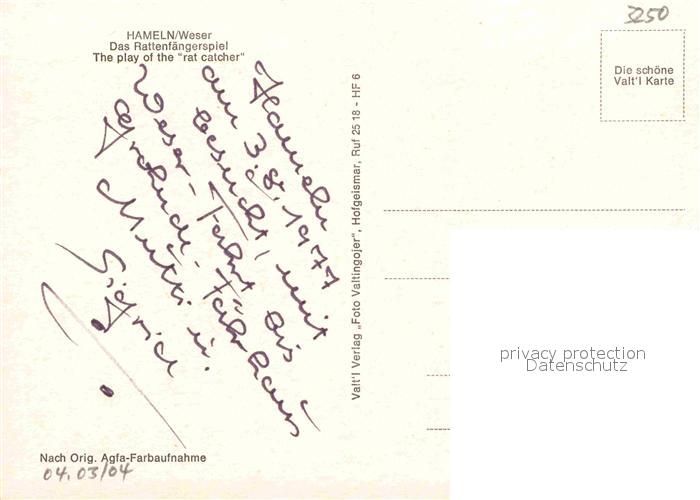 HAMELN/Weser
Das Rattenfängerspiel
The play of the "rat catcher"
3250
Die schöne
Valt'l Karte
Hameln
am 3.8.1977
besucht, mit
Weser-Fahrt bis
Grohnde-Fährhaus
Mutti u.
Sigfried
Valt'l Verlag „Foto Valtingojer", Hofgeismar, Ruf 25 18 - HF 6
privacy protection
Datenschutz
Nach Orig. Agfa-Farbaufnahme
04.03/04